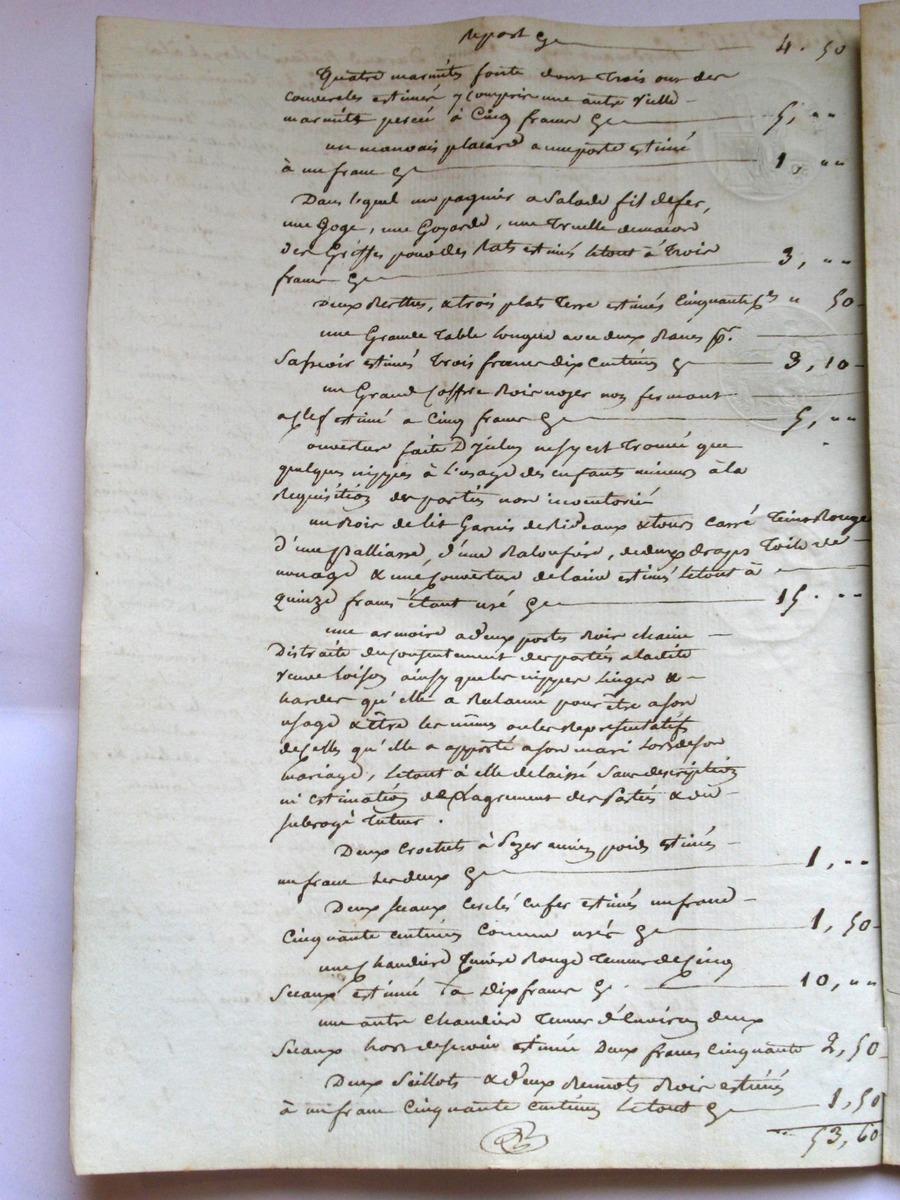 Report Cy 4. 50
Quatre marmites fonte dont trois ont des
couvercles estimés y compris une autre vielle
marmitte perceé à Cinq francs Cy 5, ""
un mauvais placard a une porte estimé
à un franc Cy 1, ""
Dans lequel un pagnier a Salade fil de fer,
une Goge, une Goyarde, une Truelle de maison
des Griffes pour des Rats estimés letout à trois
francs Cy 3, ""
Deux Berthes, & trois plats Terre estimés Cinquante " 50
une Grande Table longue avec deux Bancs pr.
Sasseoir estimés Trois francs dix centimes Cy 3, 10
un Grand Coffre Bois noyer non fermant
a clef estimé a Cinq francs Cy 5, ""
ouverture faite Dyceluy ne sy est trouvé que
quelques nippes à L'usage des enfants mineurs à la
Requisition des parties non inventorié
un Bois de lit Garnis de Rideaux & tours carré Teint Rouge
d'une palliasse, d'une Baloufiere, de deux draps Toile de
menage & une Couverture de laine estimés letout à
quinze francs étant usé Cy 15. ""
une armoire a deux portes Bois chaine
Distraite du consentement des partés a ladite
veuve Loison ainsy que les nippes Linges &
hardes qu'elle a Retenue pour être a son
usage & être les mêmes ou les Representatifs
de Celles qu'elle a apporté a son mari Lors de son
mariage, letout à elle delaissé sans description
ni estimation de l'agrement des partés & du
subrogé tuteur.
Deux Crochets à Pezer ancien poids estimés
un franc les deux Cy 1, ""
Deux seaux Cerclés en fer estimés un franc
Cinquante centimes comme usés Cy 1, 50
une Chaudiere Cuivre Rouge Tenue de Cinq
Seaux estimée a Dix francs Cy 10, ""
une autre Chaudiere Tenue d'Environ deux
Seaux hors de service estimée Deux francs Cinquante 2, 50
Deux Seillots & deux Bennots Bois estimés
à un franc Cinquante centimes letout Cy 1, 50
53, 60